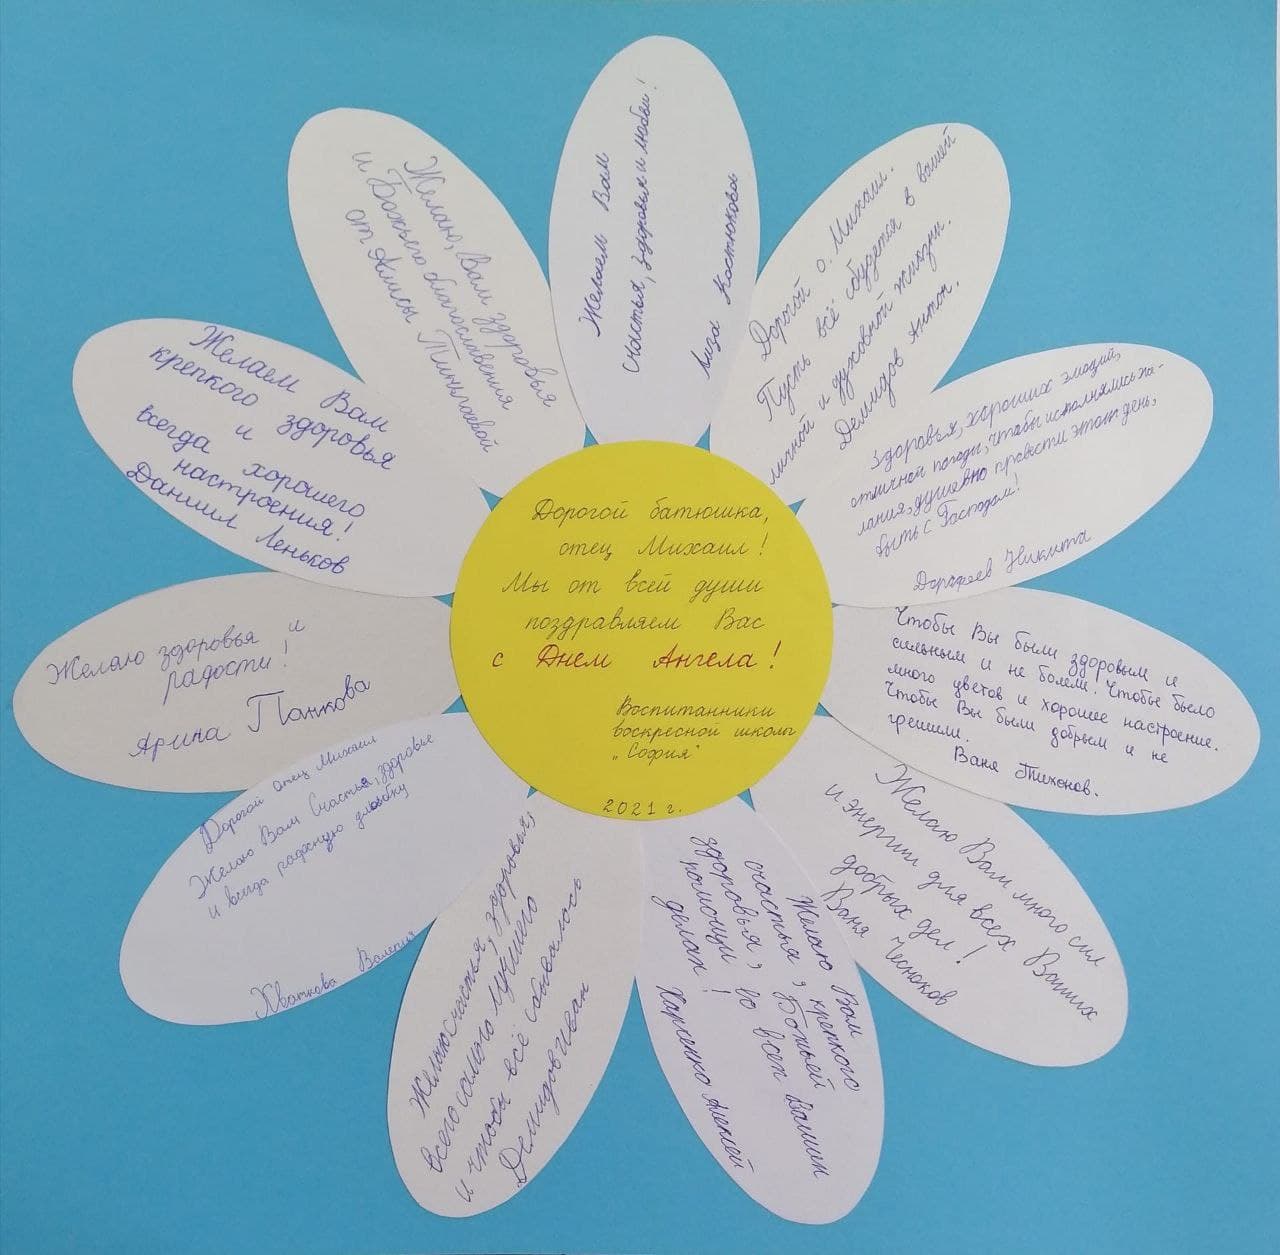 Дорогой батюшка,
отец Михаил!
Мы от всей души
поздравляем Вас
с Днем Ангела!
Воспитанники
воскресной школы
„София"
2021 г.
Желаем Вам
счастья, здоровья и любви!
Лиза Костюкова
Дорогой о. Михаил.
Пусть всё сбудется в вашей
личной и духовной жизни.
Демидов Антон.
Здоровья, хороших эмоций,
отличной погоды, чтобы исполнялись же-
лания, душевно провести этот день,
быть с Господом!
Дорофеев Никита
Чтобы Вы были здоровым и
сильным и не болели. Чтобы было
много цветов и хорошее настроение.
Чтобы Вы были добрым и не
грешили.
Ваня Тихонов.
Желаю Вам много сил
и энергии для всех Ваших
добрых дел!
Ваня Чесноков
Желаю Вам
счастья, крепкого
здоровья, Божьей
помощи во всех Ваших
делах!
Харченко Алексей
Желаю счастья, здоровья,
всего самого лучшего
и чтобы всё сбывалось
Демидов Иван
Дорогой отец Михаил
Желаю Вам Счастья, здоровье
и всегда радужную улыбку
Хваткова Валерия
Желаю здоровья и
радости!
Арина Панкова
Желаем Вам
крепкого здоровья
и
всегда хорошего
настроения!
Даниил Леньков
Желаю, Вам здоровья
и Божьего благославения
от Алисы